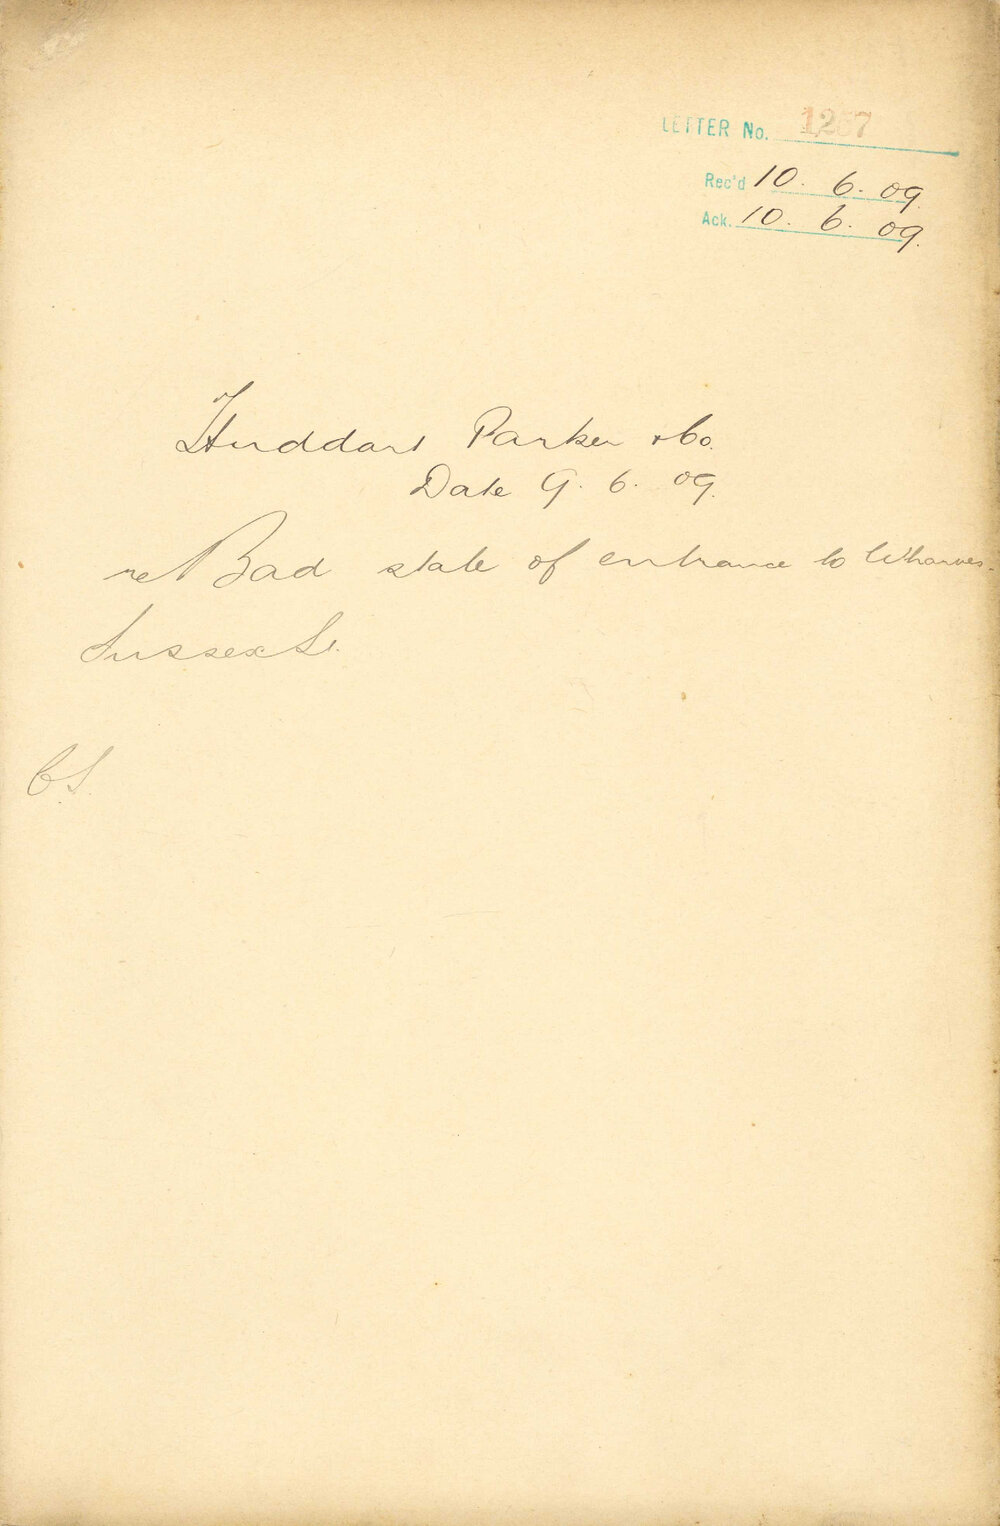 LETTER No. 1257
Rec'd 10. 6. 09.
Ack. 10. 6. 09.
Huddart Parker & Co.
Date 9. 6. 09.
re Bad state of entrance to Wharves.
Sussex St.
C.S.